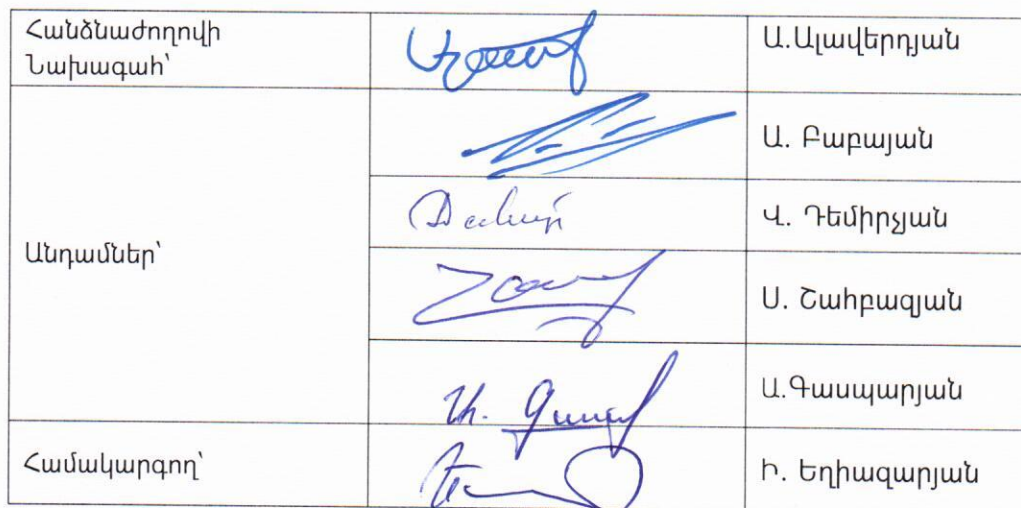 Հանձնաժողովի
Նախագահ՝
Ա.Ալավերդյան
Ա. Բաբայան
Վ. Դեմիրչյան
Անդամներ՝
Ս. Շահբազյան
Ա.Գասպարյան
Համակարգող՝
Ի. Եղիազարյան